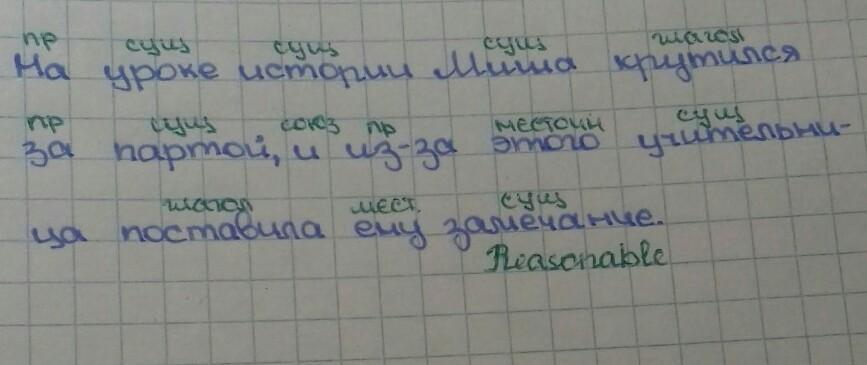 пр сущ сущ сущ глагол
На уроке истории Миша крутился
пр сущ союз пр местоим сущ
за партой, и из-за этого учительни-
глагол мест. сущ
ца поставила ему замечание.
Reasonable